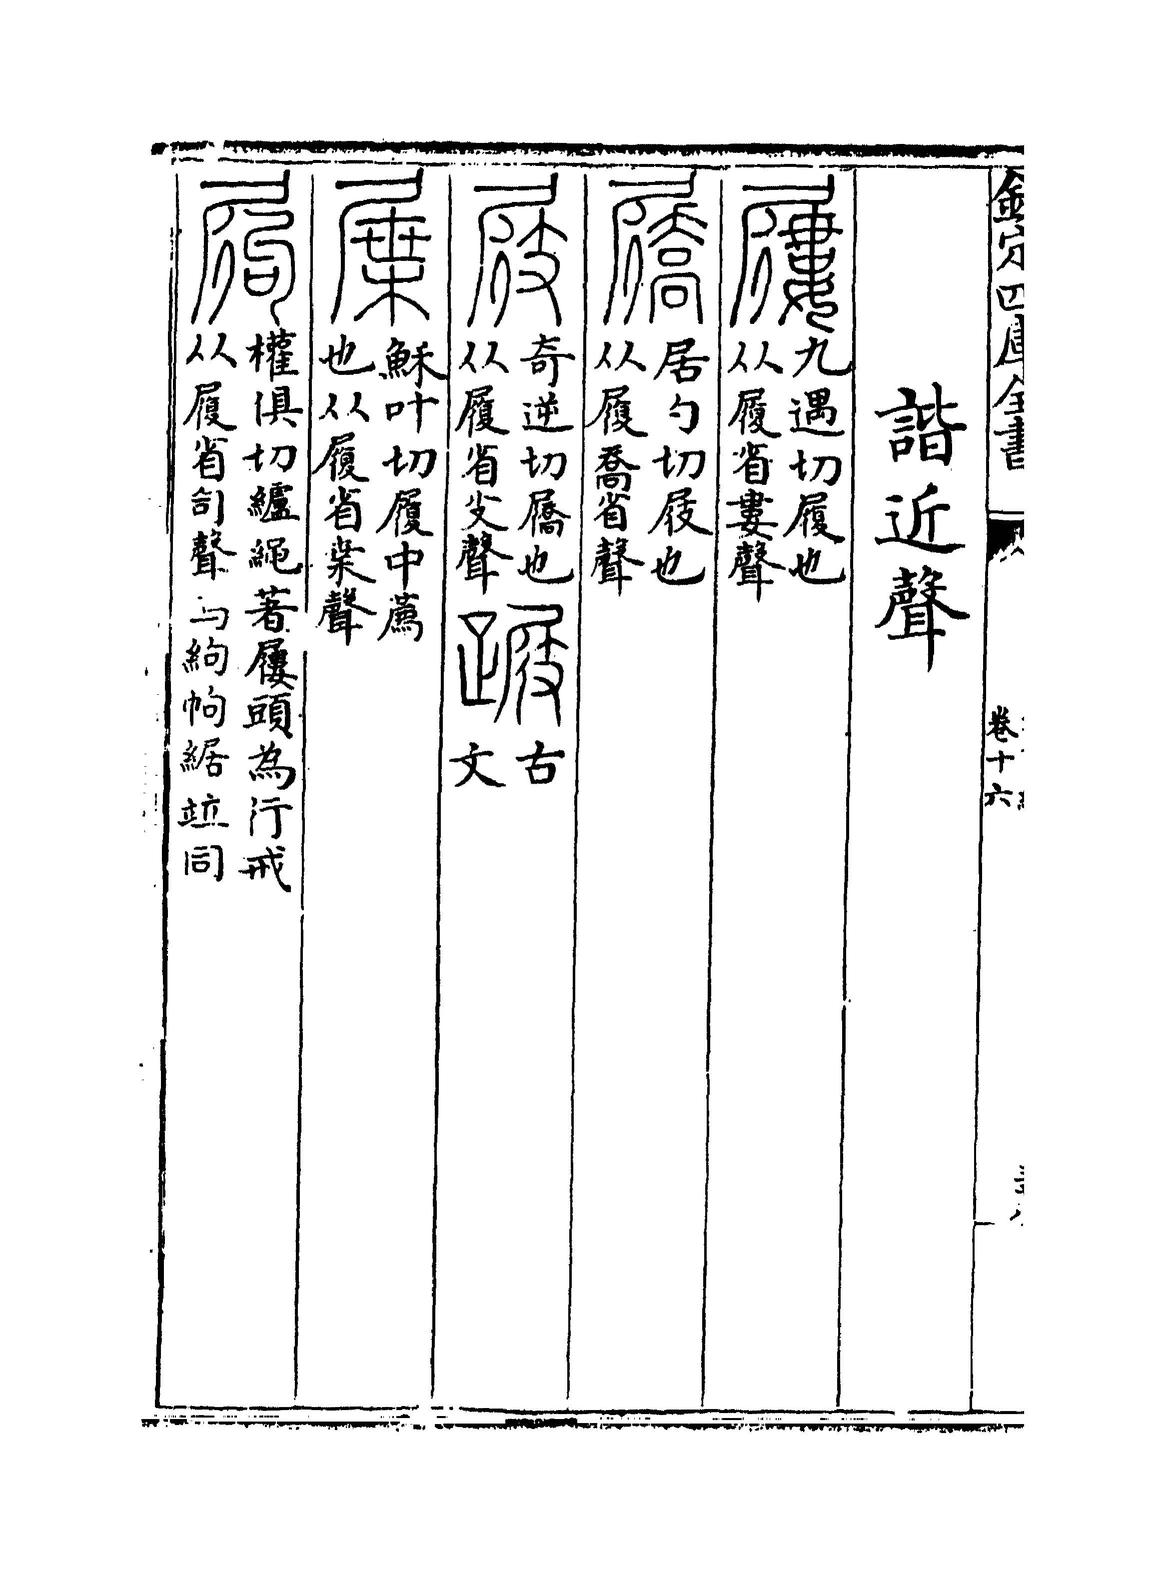 欽定四庫全書
卷十六
諧近聲
屨 九遇切履也
从履省婁聲
屩 居勺切屐也
从履喬省聲
屐 奇逆切屩也
从履省支聲
古
文
屟 穌叶切履中薦
也从履省枼聲
權俱切纑繩著屨頭為行戒
从履省句聲与絇竝同